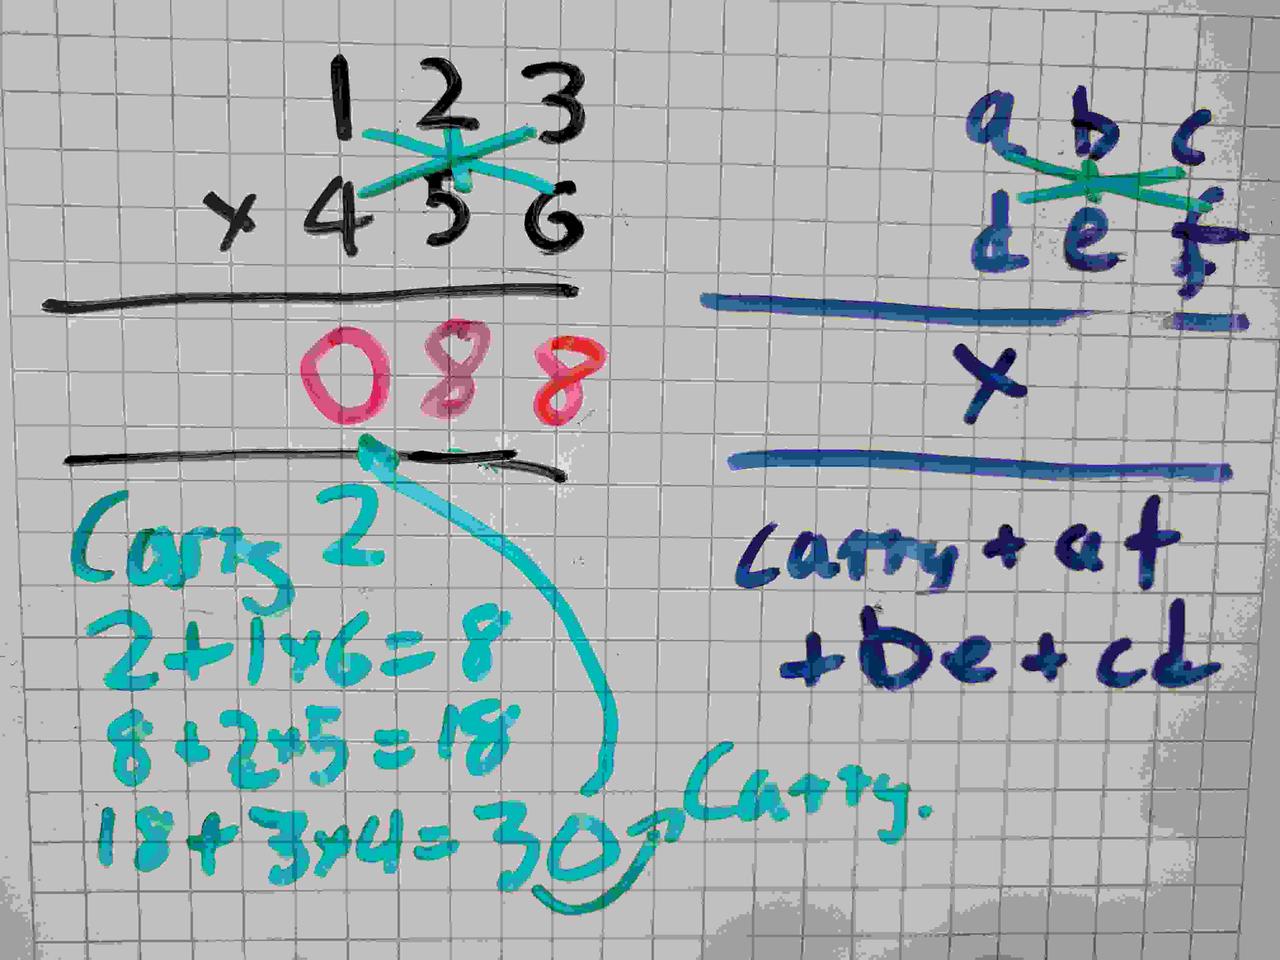 1 2 3
× 4 5 6
0 8 8
Carry 2
2+1×6=8
8+2×5=18
18+3×4=30
Carry.
a b c
d e f
x
carry + af
+be+cd